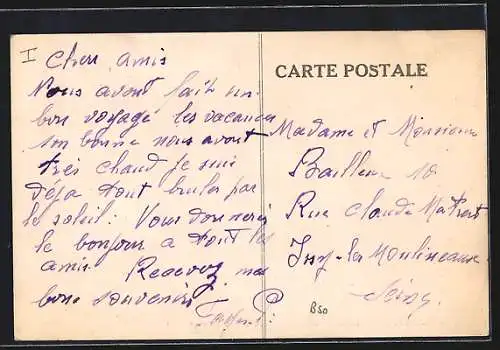 I
Cher amis
Nous avont fait un
bon voyage les vacances
son bonne nous avont
très chaud Je suis
déja tout bruler par
le soleil: Vous donnerez
le bonjour a tout les
amis. Recevez mes
bons souvenirs
CARTE POSTALE
Madame et Monsieur
Bailleux 10
Rue Claude Matrat
Issy-les Moulineaux
Seine
B50